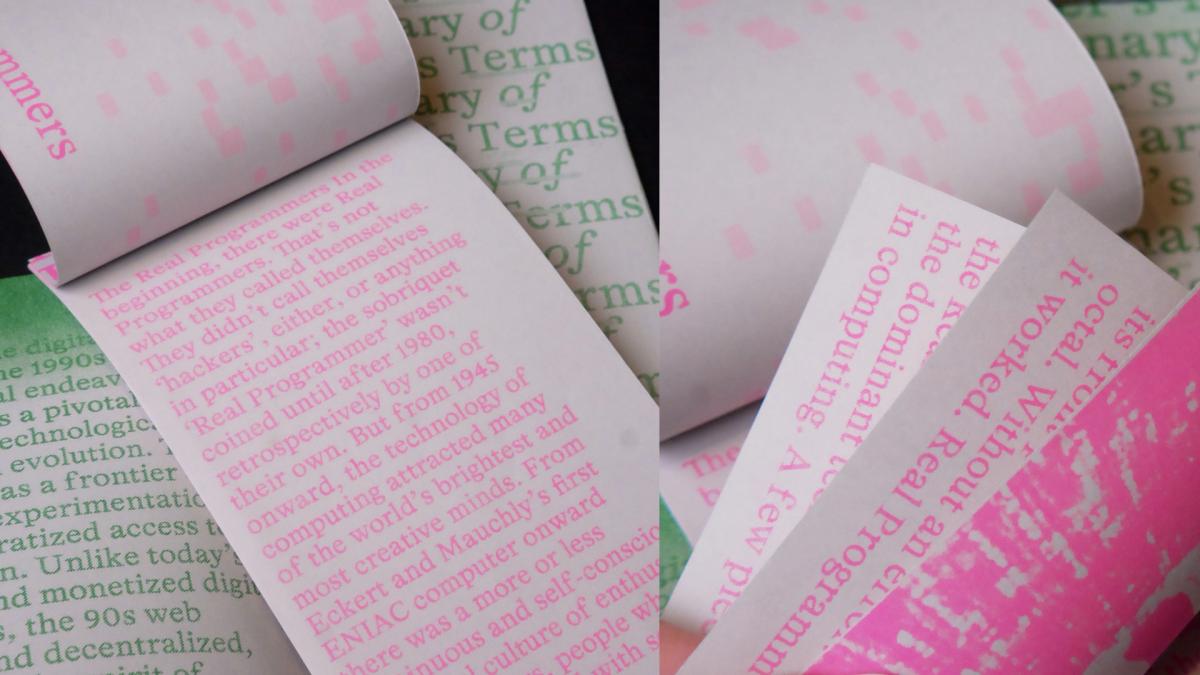 mmers
ary of
s Terms
ary of
s Terms
y of
Terms
of
rms
The Real Programmers In the
beginning, there were Real
Programmers. That's not
what they called themselves.
They didn't call themselves
'hackers', either, or anything
in particular; the sobriquet
'Real Programmer' wasn't
coined until after 1980,
retrospectively by one of
their own. But from 1945
onward, the technology of
computing attracted many
of the world's brightest and
most creative minds. From
Eckert and Mauchly's first
ENIAC computer onward
there was a more or less
inuous and self-conscio
l culture of enthus
rs, people wh
with s
e digit
he 1990s
al endeav
s a pivotal
echnologic
evolution.
as a frontier
experimentatio
ratized access t
n. Unlike today'
nd monetized digit
s, the 90s web
nd decentralized,
spirit of
nary
r's
nary
's
nar
rs
The
the Rea
the dominant
in computing. A few pi
its
octal. Without an er
it worked. Real Programm